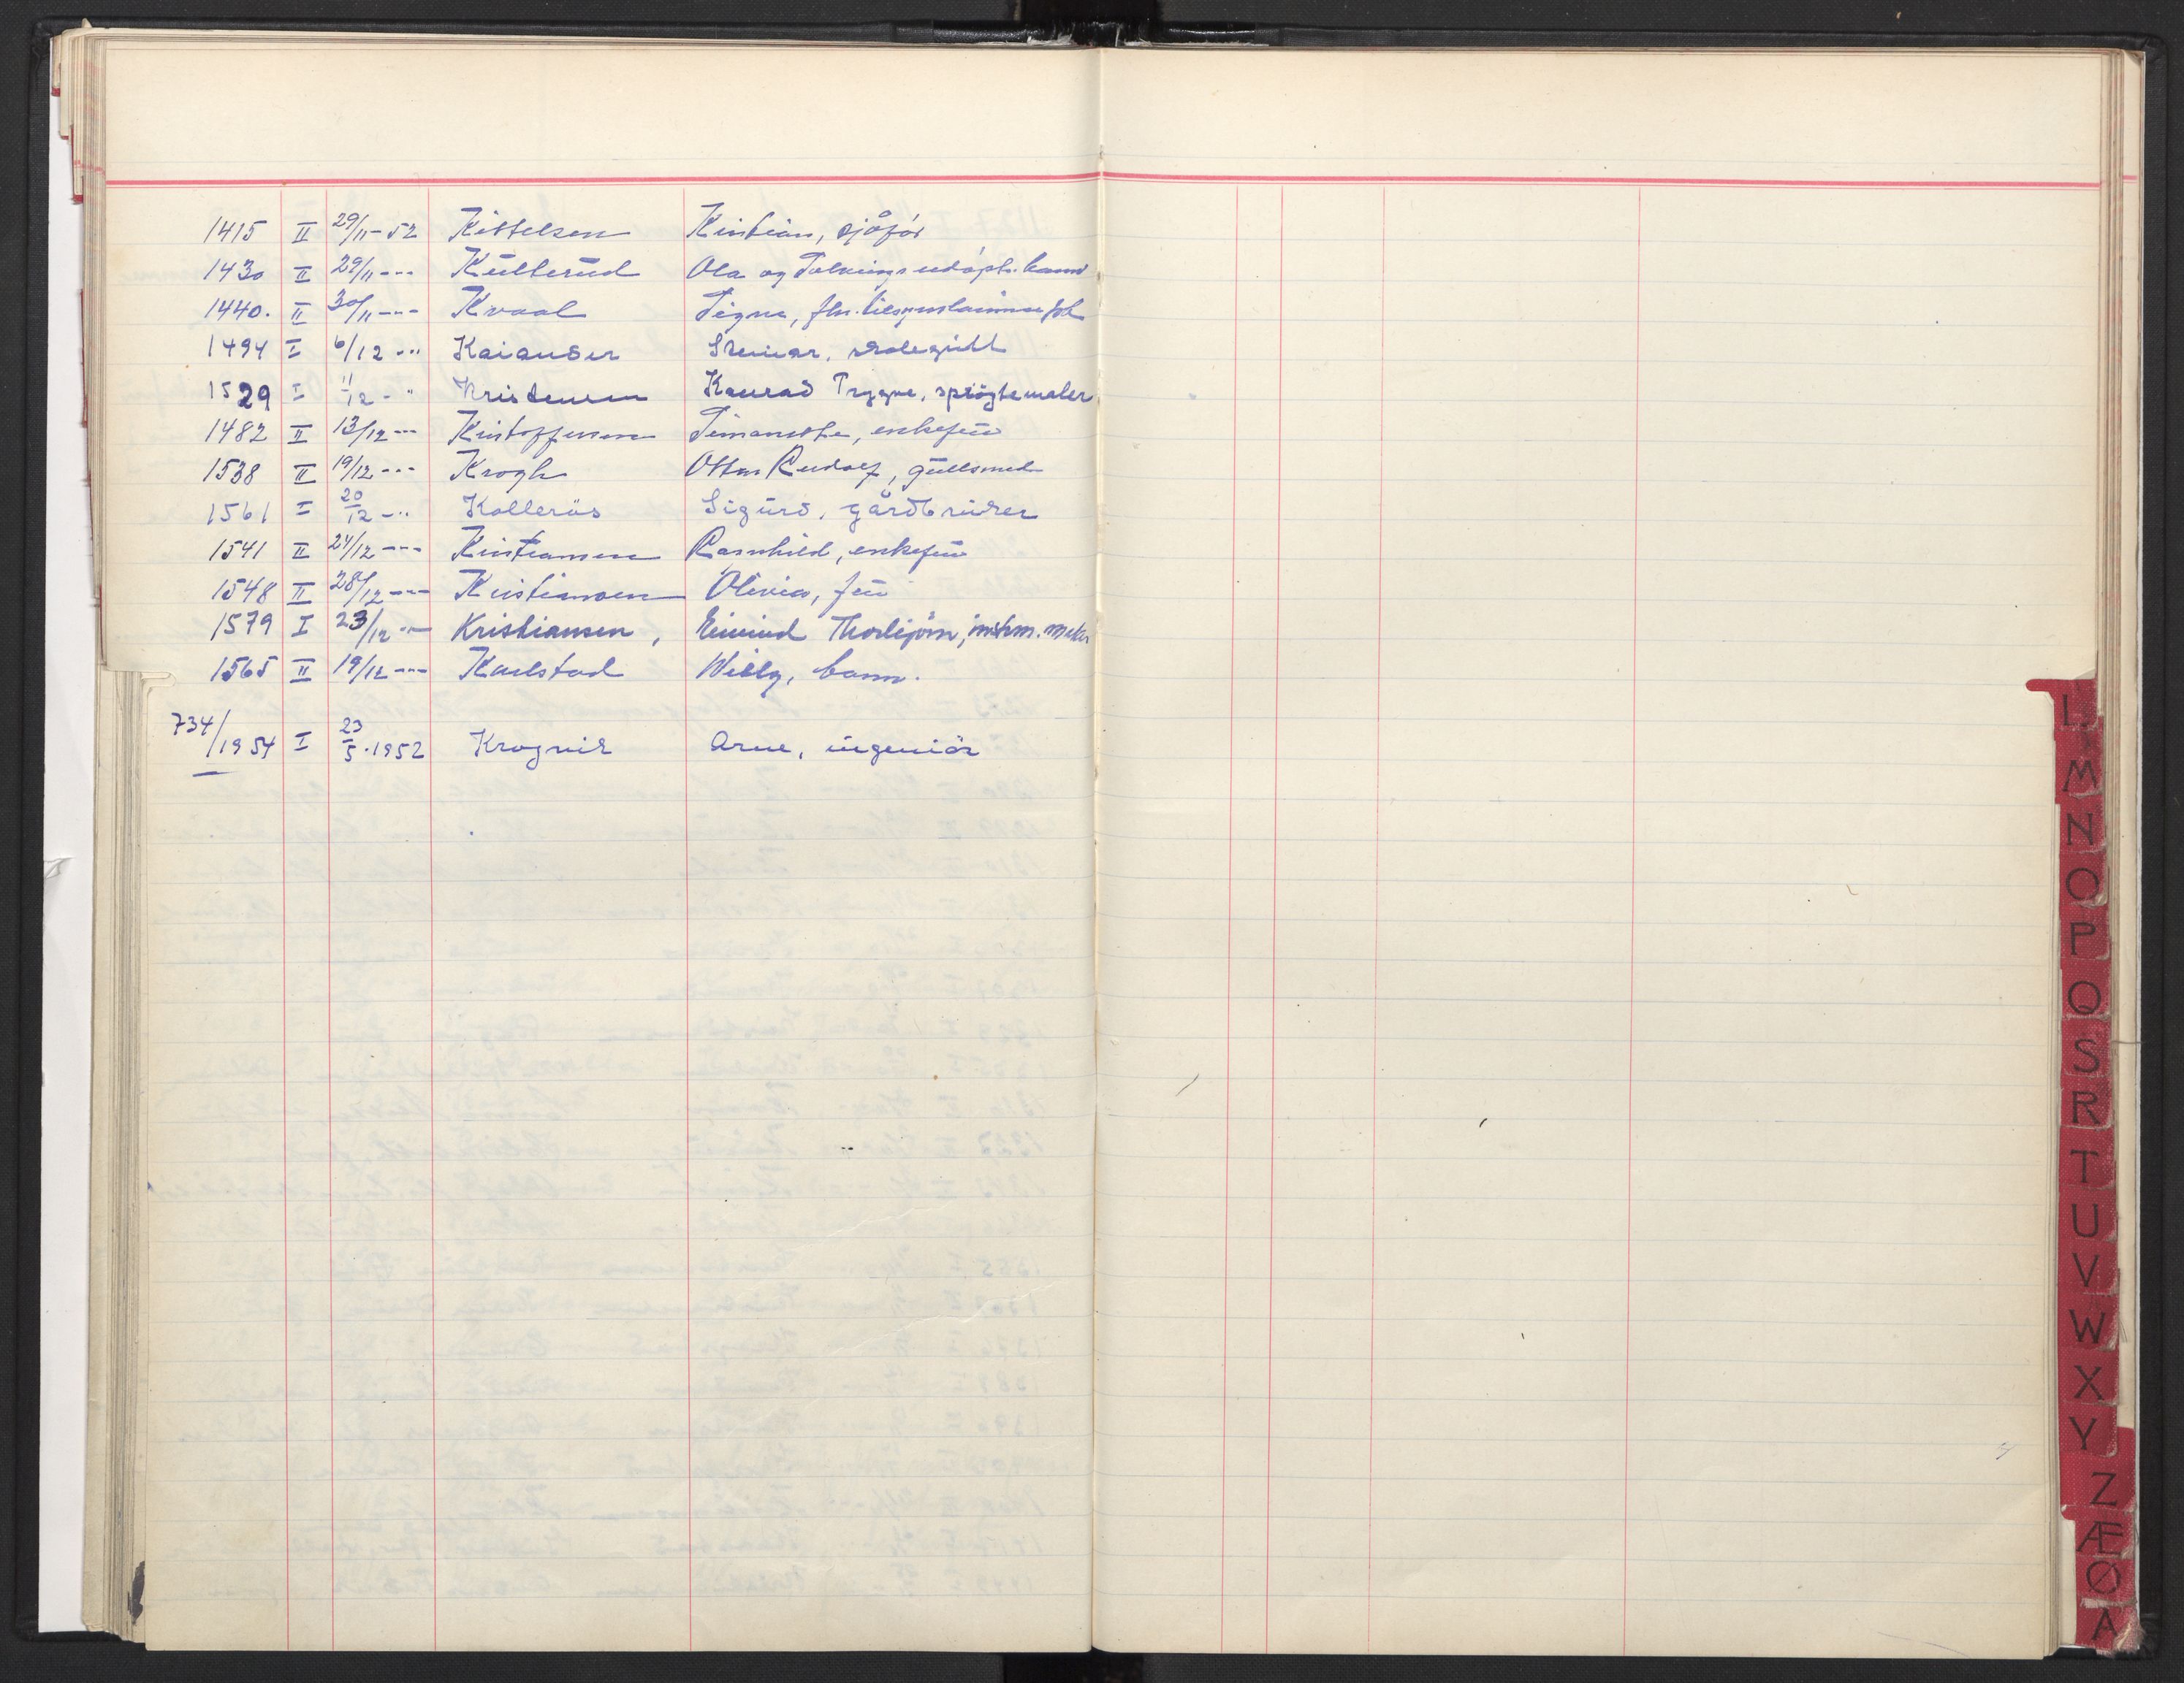 1415 II 29/11-52 Kittelsen Kristian, sjåfør
1430 II 29/11 --- Kulterud Ola og udøpt
1440. II 30/11 --- Kvaal Signe,
1494 I 6/12 -" Kaiander Steinar, skolegutt
1529 I 11/12 - " Kristensen Konrad Trygve, sprøytemaler
1482 II 13/12 --- Kristoffersen enkefru
1538 II 19/12 --- Krogh Ottar Rudolf, gullsmed
1561 I 20/12 -" Kollerös Sigurd, gårdbruker
1541 II 24/12 --- Kristiansen Ragnhild, enkefru
1548 II 28/12 --- Kristiansen Olivia, fru
1579 I 23/12 -- Kristiansen, Eivind Thorbjörn, instrm. maker
1565 II 19/12 --- Karlstad Willy, barn.
734/1954 I 23/5.1952 Krogvik Arne, ingeniör
L
M
N
O
P
Q
S
R
T
U
V
W
X
Y
Z
Æ
Ø
A